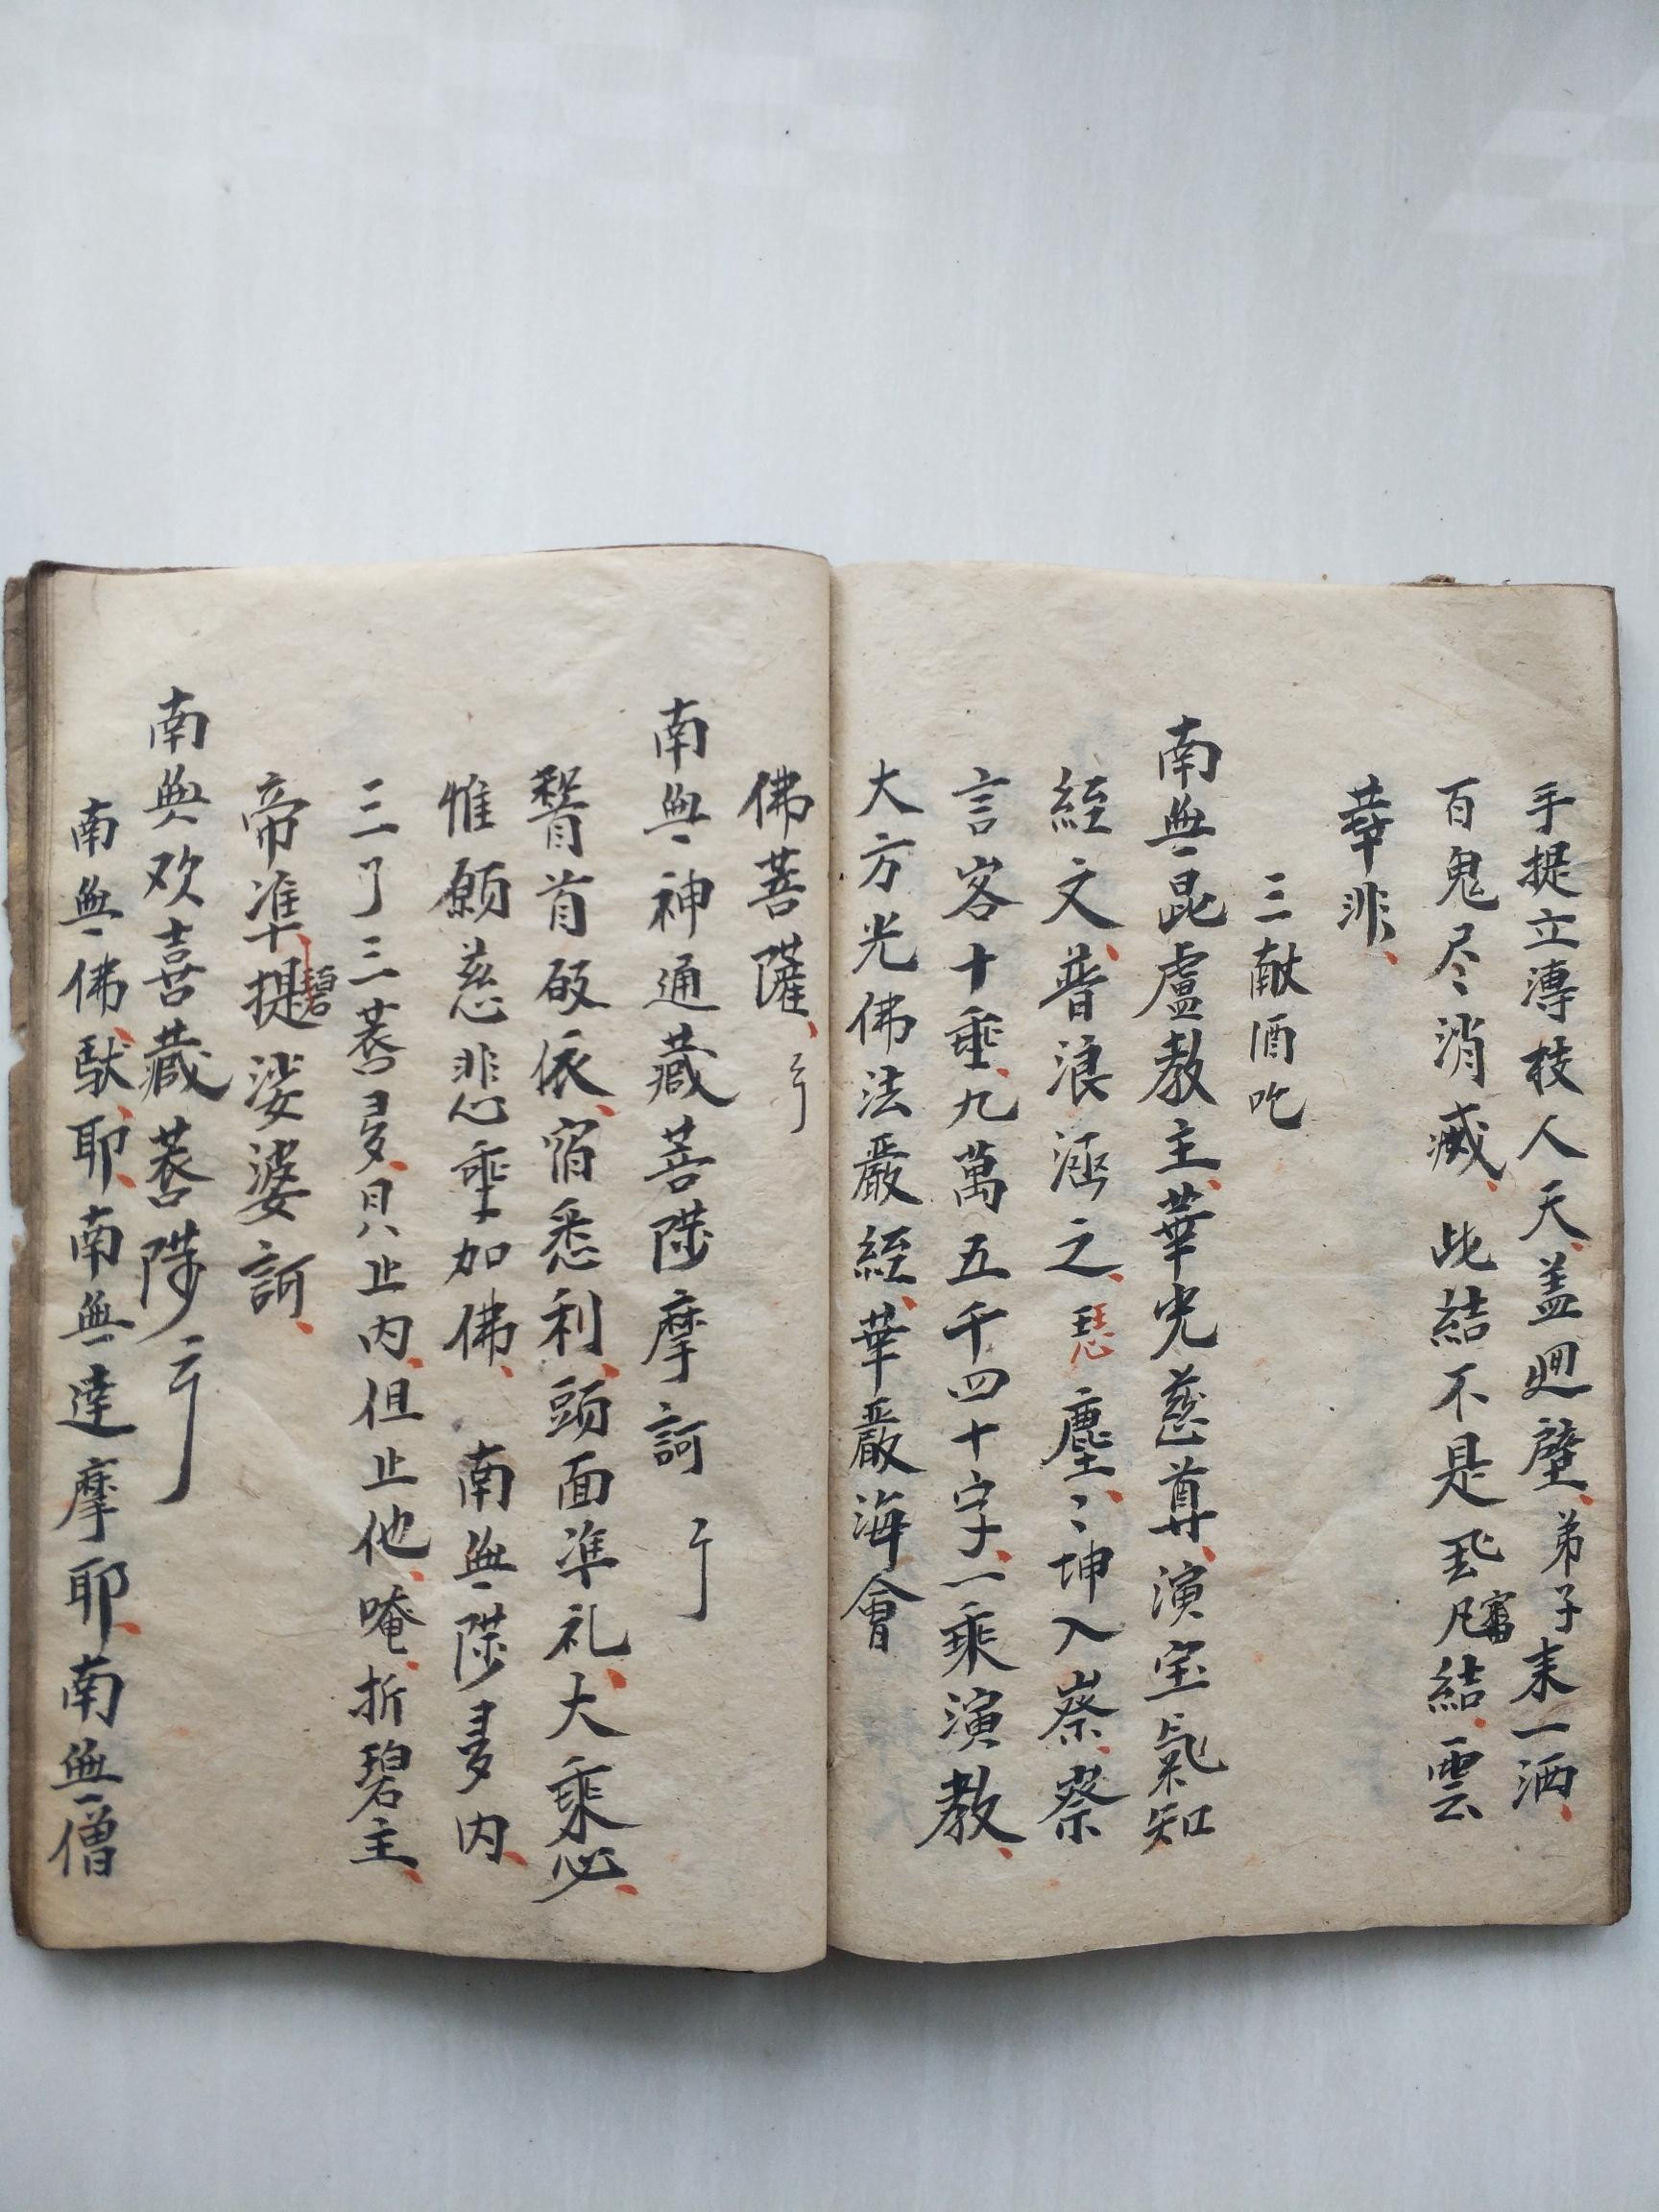 手提立漙枝人天盖廽壁弟子来一洒
百鬼尽消滅此結不是凡結雲
幸非
三献酒吃
南無昆盧教主華光慈尊演宝氣知
経文普浪涵之塵〻坤入察察
言客十重九萬五千四十字一乘演教
大方光佛法嚴経華嚴海會
佛菩薩
南無神通藏菩陸摩訶
稽首皈依宿悉利頭面準礼大乘必
惟願慈悲垂加佛 南無陸多内
三了三菩多具止内但止他唵折碧主
帝準提娑婆訶
南無欢喜藏菩陸
南無佛馱耶南無達摩耶南無僧